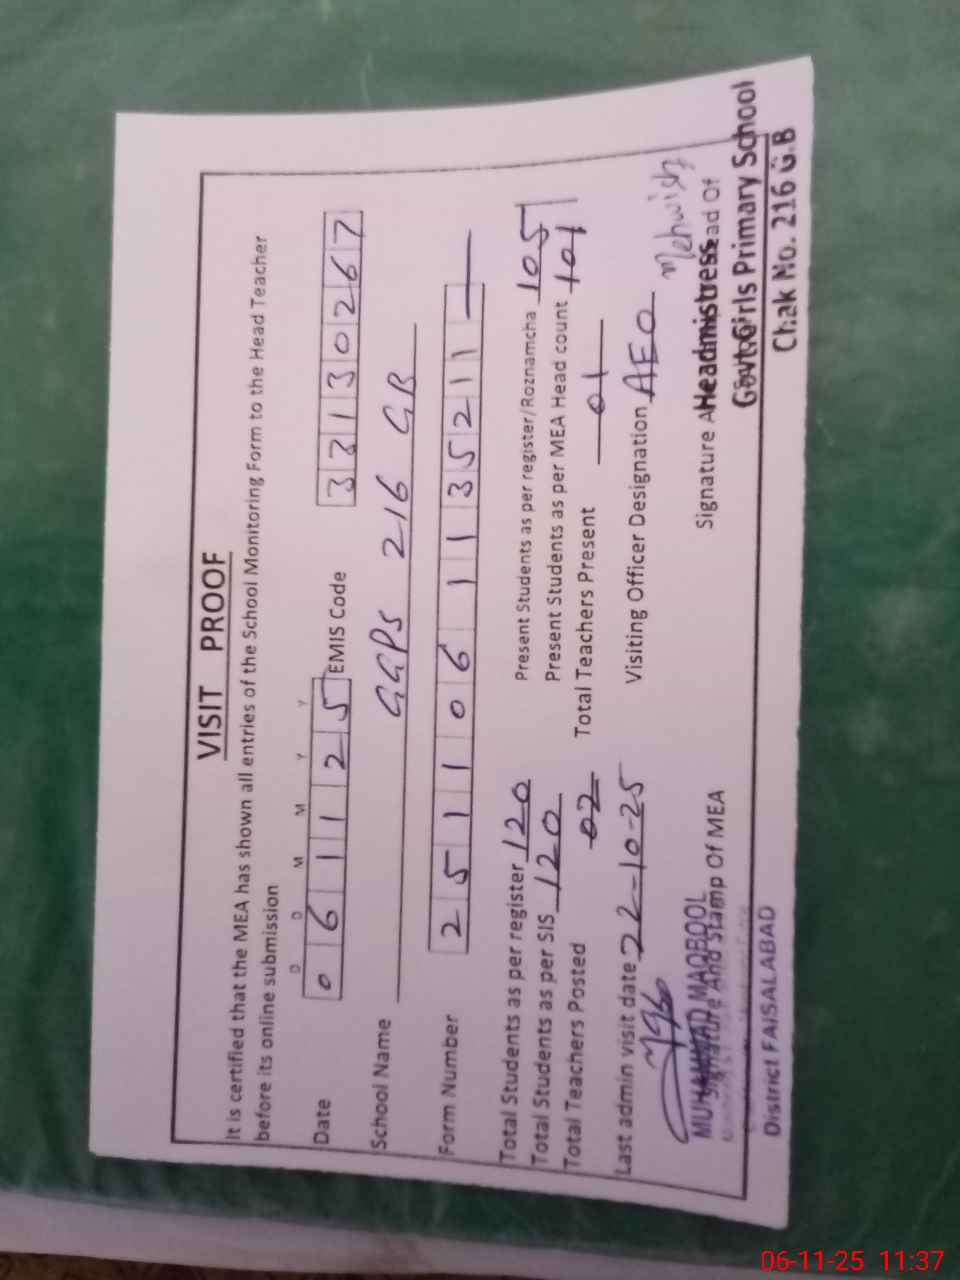 VISIT PROOF
It is certified that the MEA has shown all entries of the School Monitoring Form to the Head Teacher
before its online submission
D D M M Y Y
Date 0 6 1 1 2 5 EMIS Code 3 3 1 3 0 2 6 7
School Name GGPS 216 GB
Form Number 2 5 1 1 0 6 1 1 3 5 2 1 1 —
Total Students as per register 120 Present Students as per register/Roznamcha 105
Total Students as per SIS 120 Present Students as per MEA Head count 101
Total Teachers Posted 02 Total Teachers Present 01
Last admin visit date 22-10-25 Visiting Officer Designation AEO
Mehwish
MUHAMMAD MAQBOOL
Signature And Stamp Of MEA Signature A Head Of
Headmistress
District FAISALABAD
Govt. Girls Primary School
Chak No. 216 G.B
06-11-25 11:37